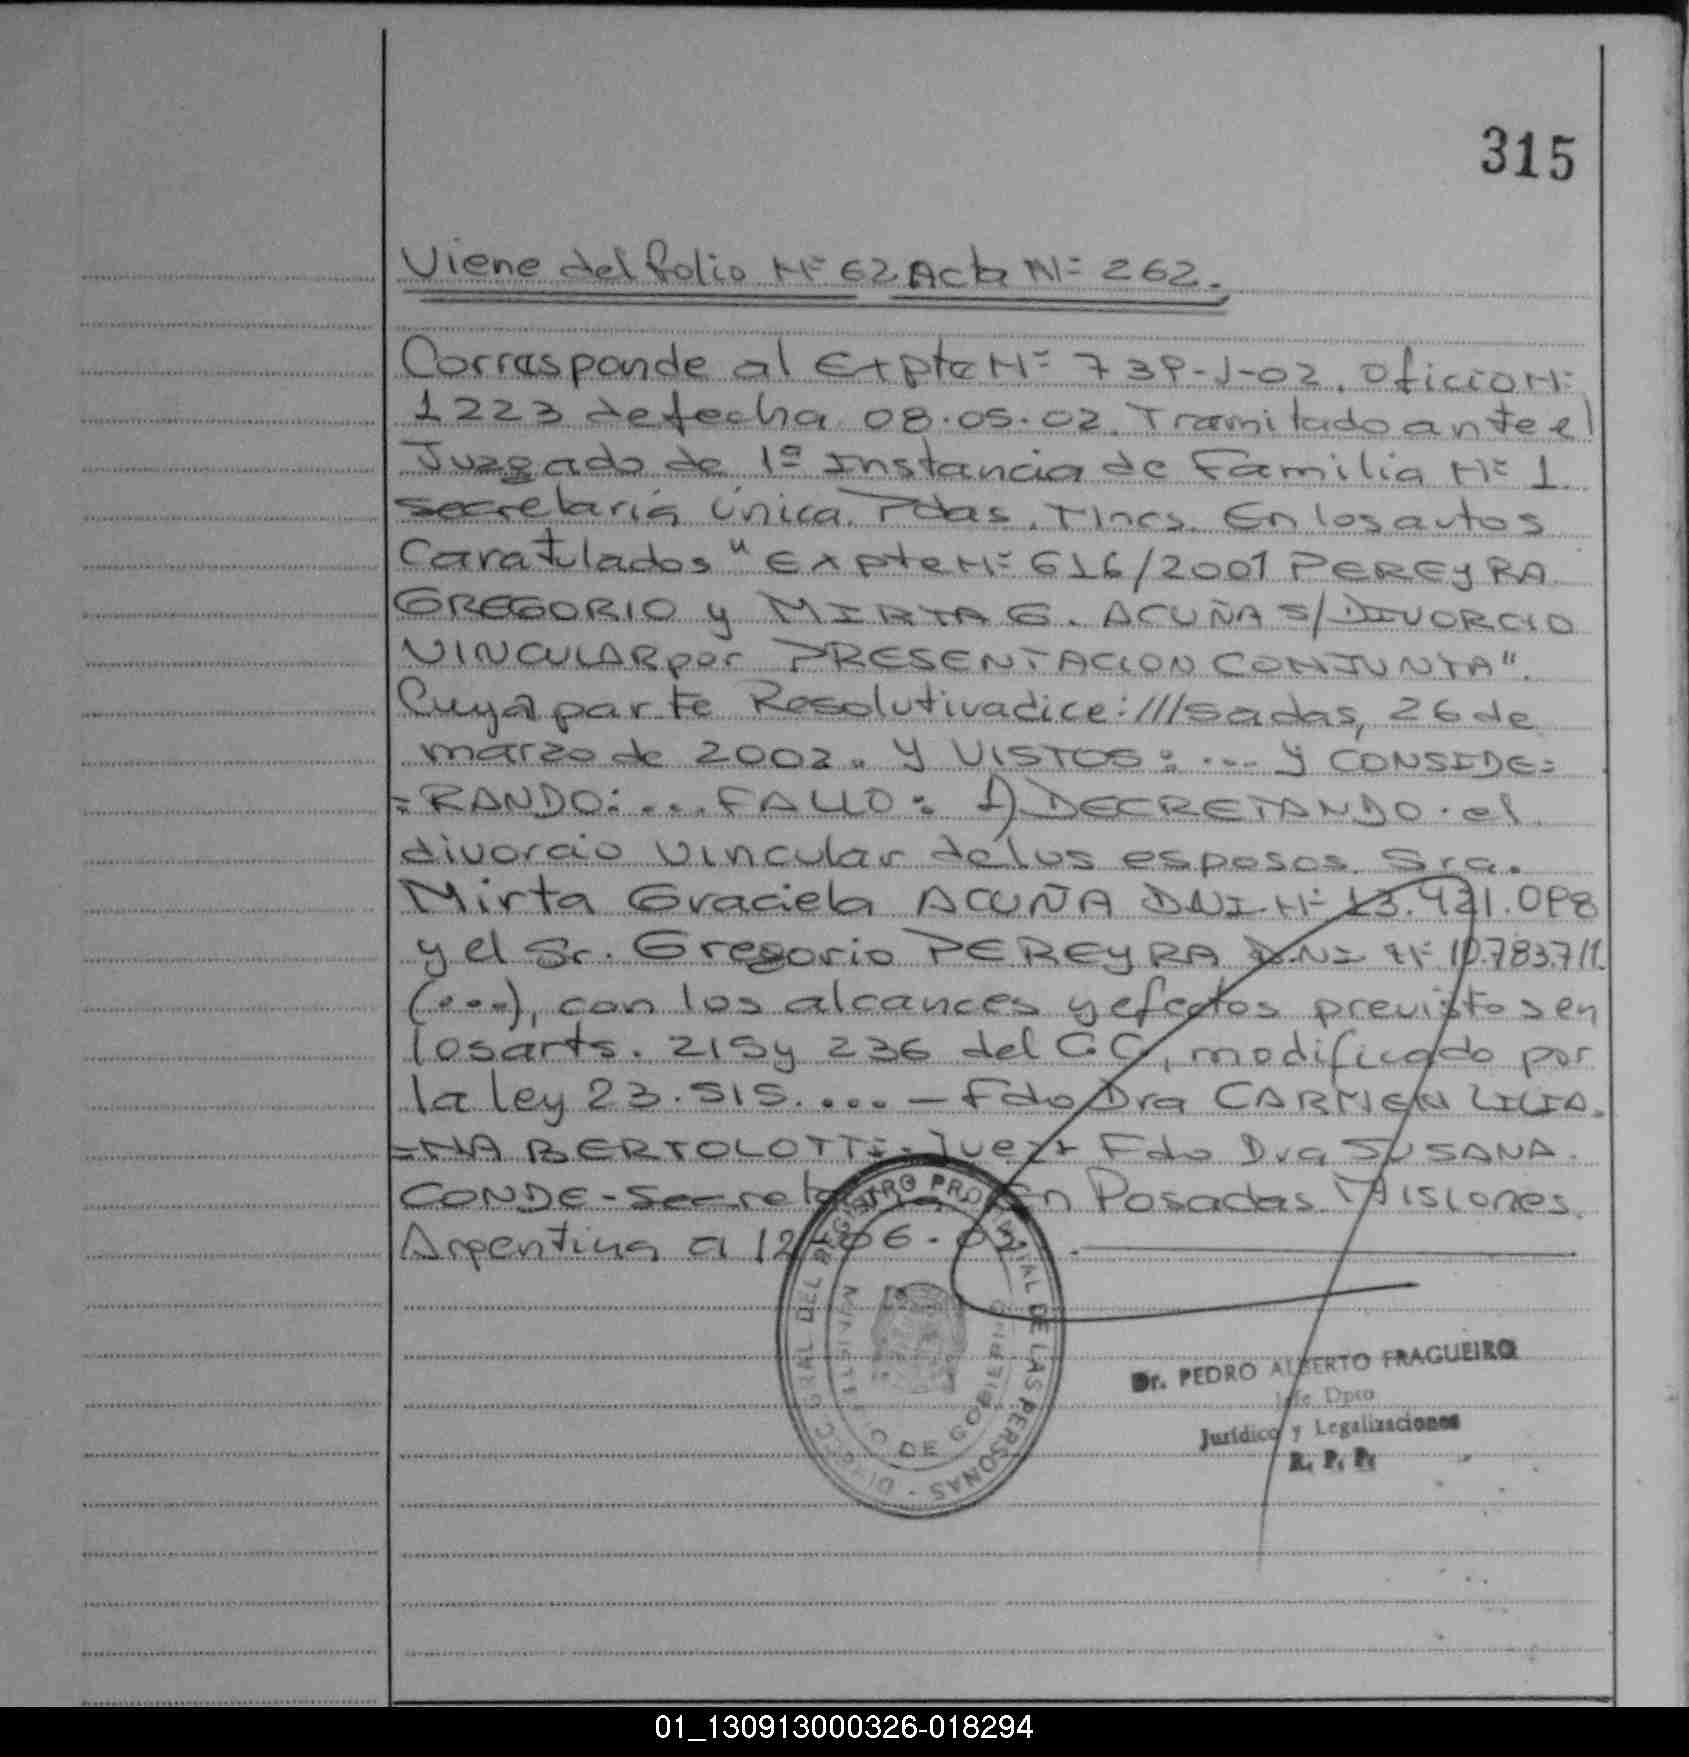 315
Viene del folio Nº 62 Acta Nº 262.
Corresponde al Expte Nº 739-J-02. Oficio Nº
1223 de fecha 08.05.02. Tramitado ante el
Juzgado de 1ª Instancia de Familia Nº 1
secretaría Única. Pdas. Mnes. En los autos
Caratulados "Expte Nº 616/2001 PEREYRA
GREGORIO y MIRTA G. ACUÑA S/DIVORCIO
VINCULAR por PRESENTACION CONJUNTA".
Cuya parte Resolutiva dice: ///sadas, 26 de
marzo de 2002. Y VISTOS: .... y CONSIDE=
=RANDO: .... FALLO: 1) DECRETANDO el
divorcio vincular de los esposos Sra.
Mirta Graciela ACUÑA DNI Nº 13.421.098
y el Sr. Gregorio PEREYRA D.N.I Nº 10.783.711.
(...), con los alcances y efectos previstos en
los arts. 215 y 236 del C.C, modificado por
la ley 23.515. .... - Fdo Dra CARMEN LILIA.
=NA BERTOLOTTI. Juez. Fdo Dra SUSANA
CONDE - Secretaria. En Posadas Misiones
Argentina a 12-06-03.
DIRECC. GRAL DEL REGISTRO PROVINCIAL DE LAS PERSONAS -
MINISTERIO DE GOBIERNO
Dr. PEDRO ALBERTO FRAGUEIRO
Jefe Dpto
Jurídico y Legalizaciones
R. P. P.
01_130913000326-018294